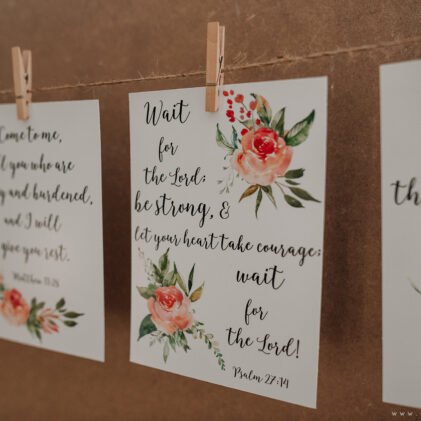 Come to me,
you who are
and burdened,
and I will
give you rest.
Matthew 11:28
Wait
for
the Lord;
be strong, &
let your heart take courage;
wait
for
the Lord!
Psalm 27:14